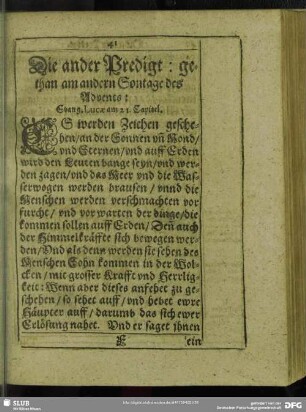 41
Die ander Predigt: ge-
than am andern Sontage des
Advents:
Evang. Lucæ am 21. Capitel.
ES werden Zeichen gesche-
hen/an der Sonnen vñ Mond/
vnd Sternen/vnd auff Erden
wird den Leuten bange seyn/vnd wer-
den zagen/vnd das Meer vnd die Was-
serwogen werden brausen/ vnnd die
Menschen werden verschmachten vor
furcht/ vnd vor warten der dinge/die
kommen sollen auff Erden/ Deñ auch
der Himmelkräffte sich bewegen wer-
den/Vnd als denn werden sie sehen des
Menschen Sohn kommen in der Wol-
cken/ mit grosser Krafft vnd Herrlig-
keit: Wenn aber dieses anfehet zu ge-
schehen/ so sehet auff/ vnd hebet ewre
Häupter auff/ darumb das sich ewer
Erlösung nahet. Vnd er saget ihnen
F ein
SLUB
Wir führen Wissen.
DFG